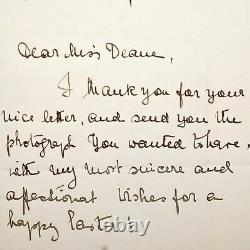 Dear Miss Deane,
I thank you for your
nice letter, and send you the
photograph You wanted to have,
with my most sincere and
affectionat wishes for a
happy Easter!